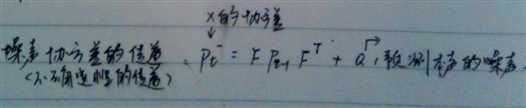 x的协方差
↓
噪声协方差的传递. P_t^- = F P_{t-1} F^T + Q → 预测本身的噪声.
(不确定性的传递)